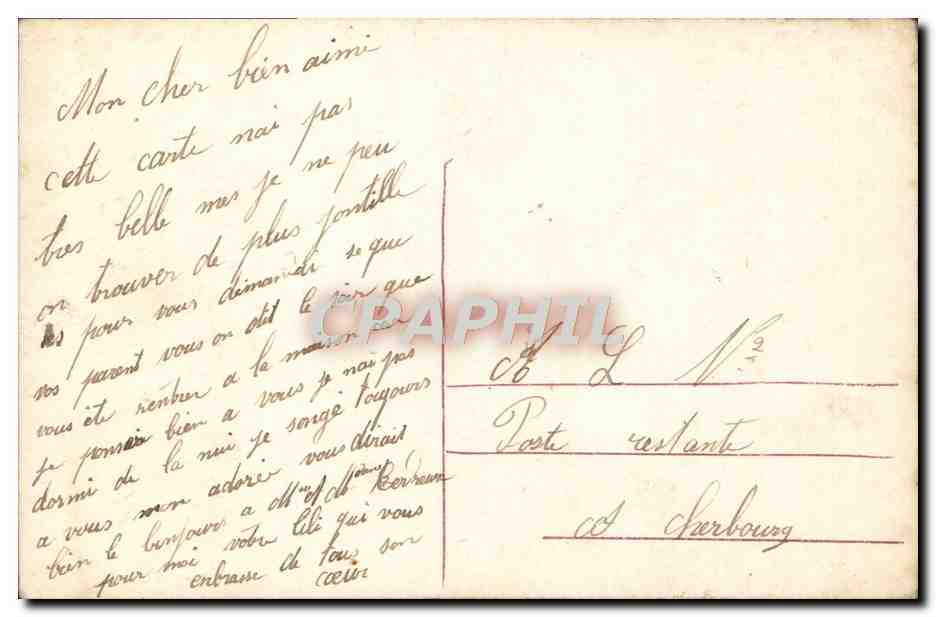 Mon cher bien aimé
cette carte nai pas
tres belle mes je ne peu
on trouver de plus jontille
pour vous demandé se que
vos parent vous on dit le soir que
vous éte rentrer a la maison car
je pensai bien a vous je nai pas
dormi de la nui je songe toujours
a vous mon adoré vous dirait
bien le bonjour a Mr et Mme
pour moi votre Lili qui vous
enbrasse de tous son
cœur
A L N°2
Poste restante
a Cherbourg
CPAPHIL